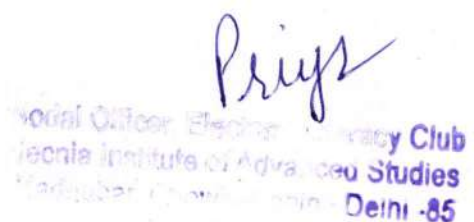 Priya
Nodal Officer Electoral Literacy Club
Tecnia Institute of Advanced Studies
Madhuban Chowk Delhi -85